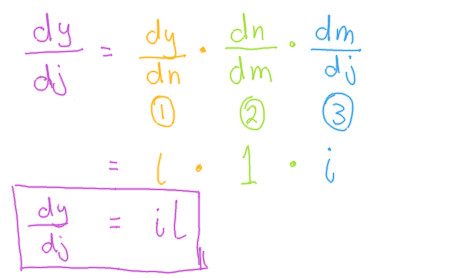 dy/dj = dy/dn · dn/dm · dm/dj
① ② ③
= l · 1 · i
dy/dj = il